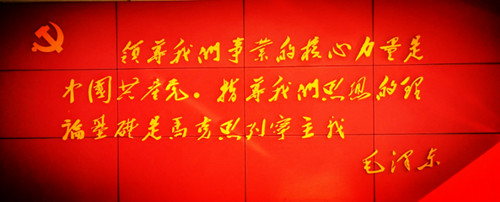 领导我们事業的核心力量是
中國共产党。指导我们思想的理
論基礎是馬克思列宁主义
毛泽东